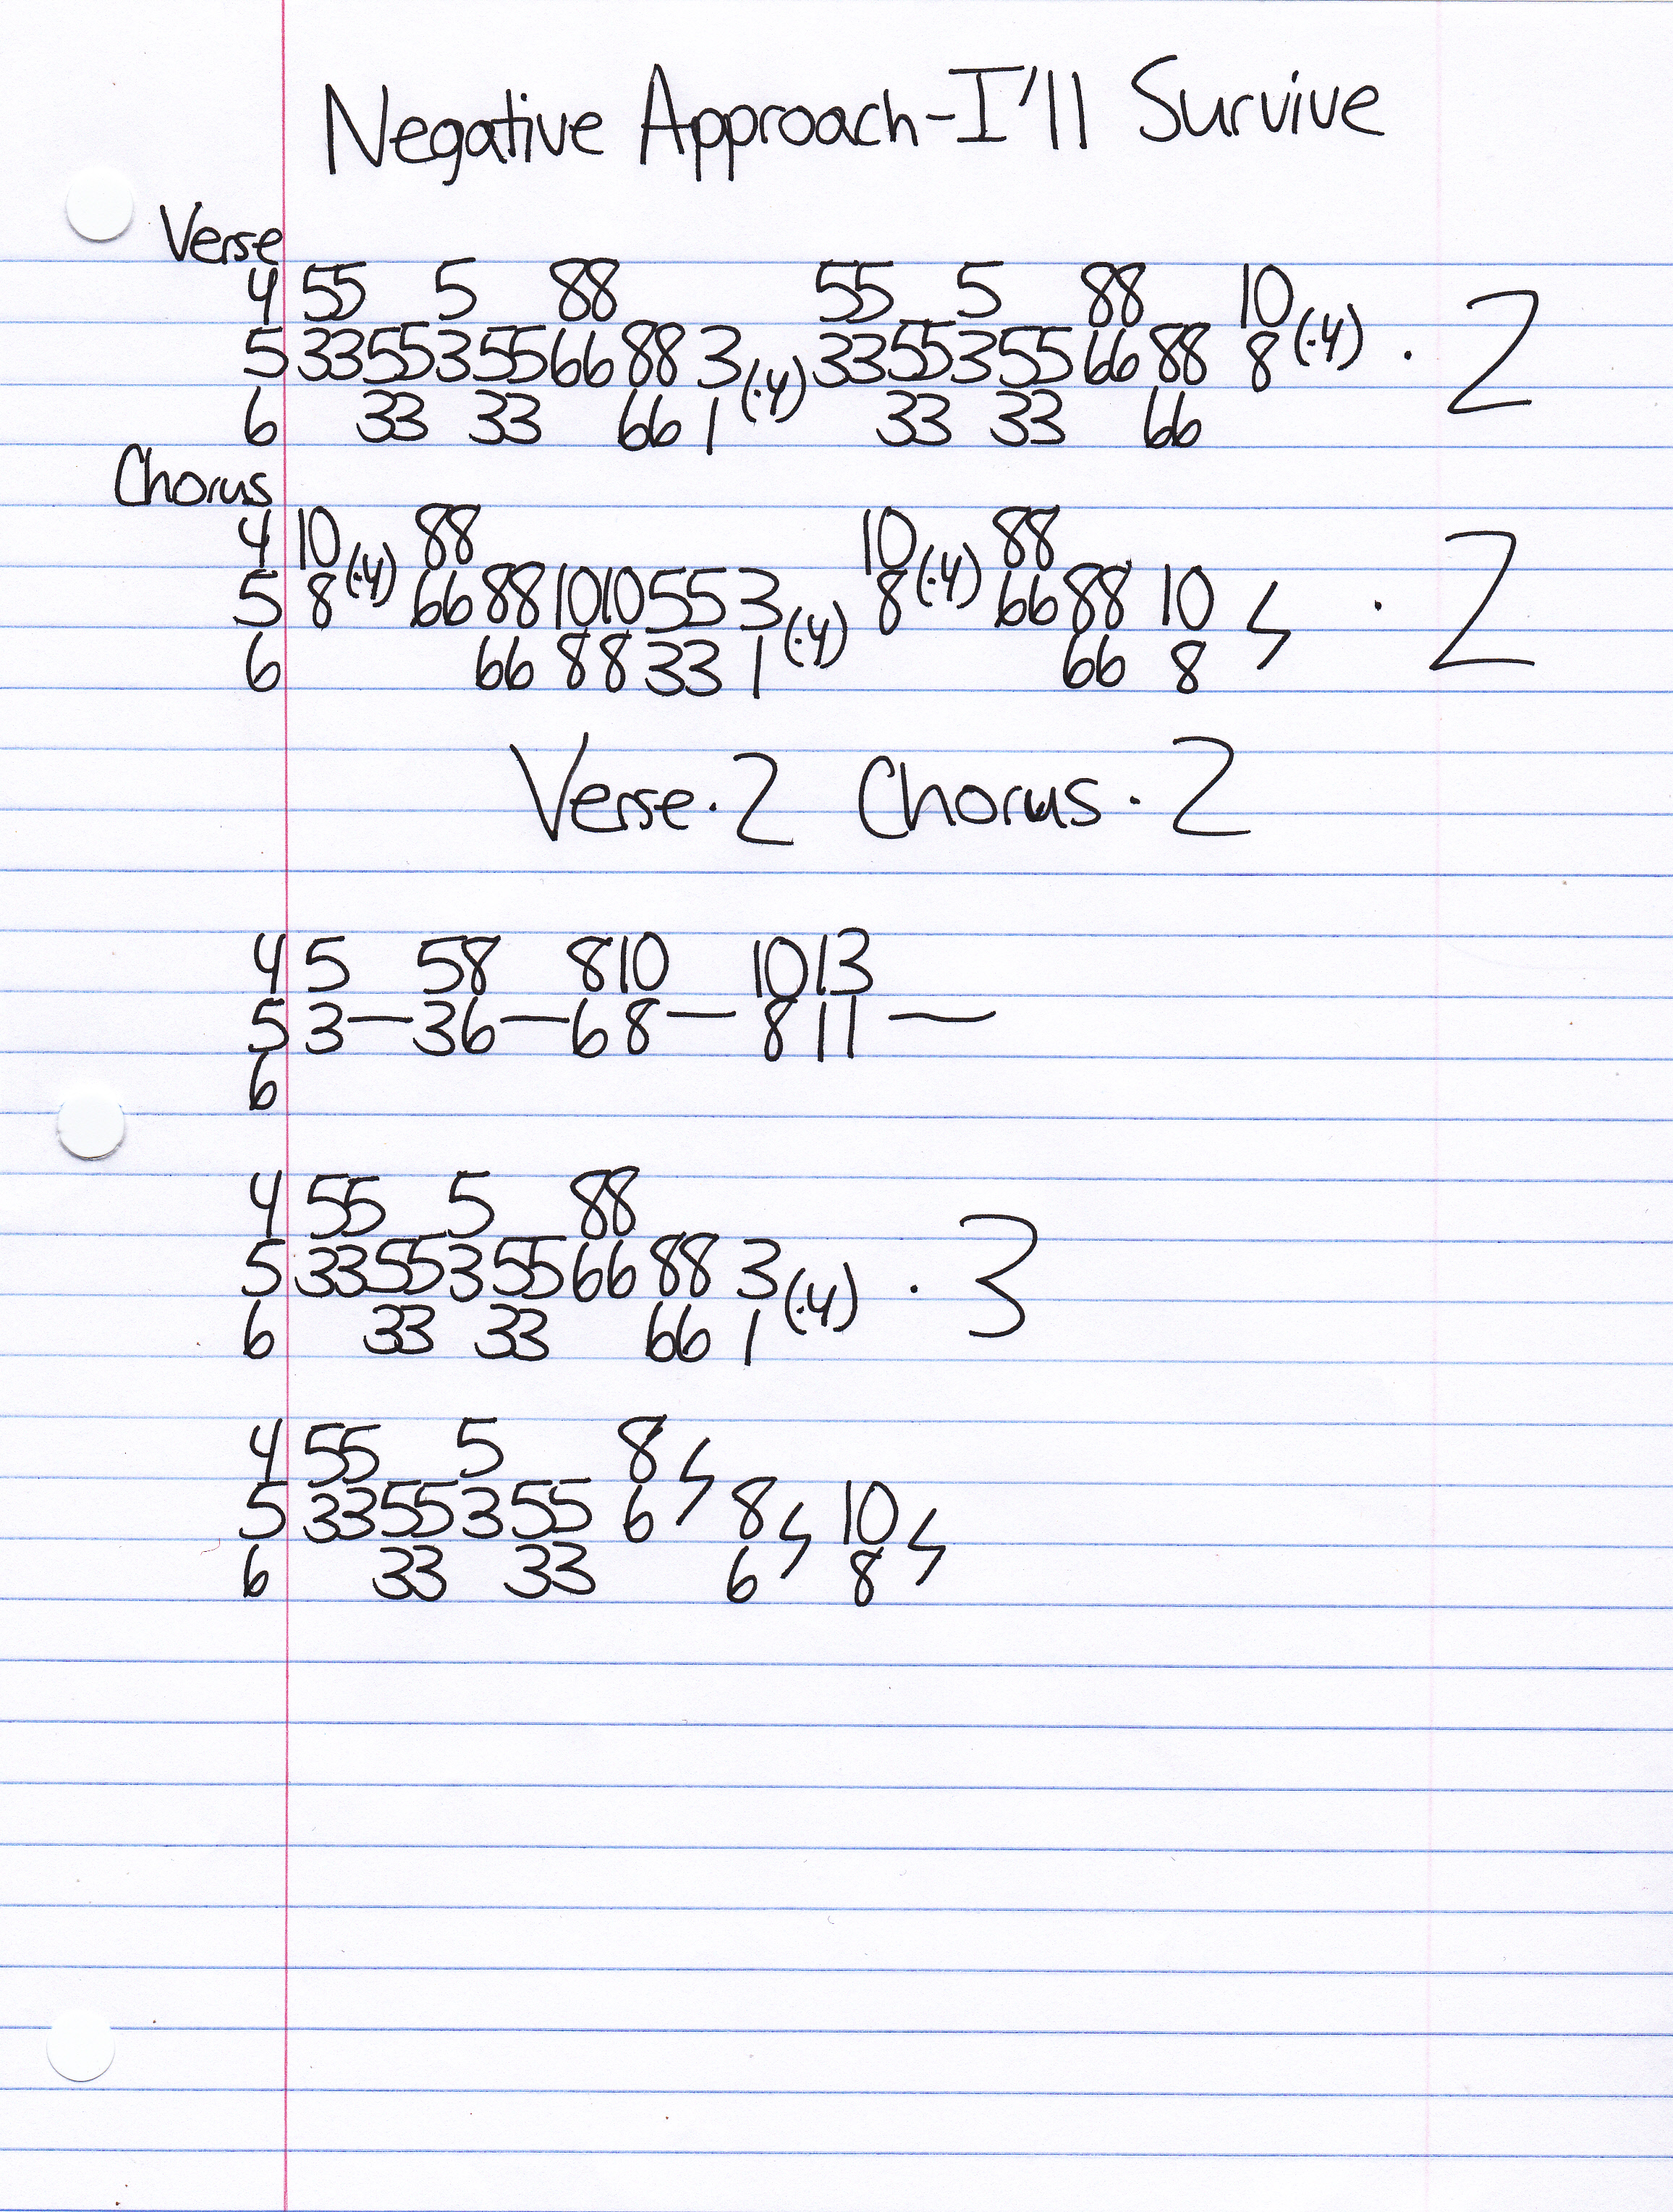 Negative Approach-I'll Survive
Verse
4 55 5 88 55 5 88 10
5 335535566 88 3 (·4) 335535566 88 8 (·4) · 2
6 33 33 66 1 33 33 66
Chorus
4 10 88 10 88
5 8 (·4) 66 88 1010 55 3 (·4) 8 (·4) 66 88 10 · 2
6 66 88 33 1 66 8
Verse·2 Chorus·2
4 5 58 810 1013
5 3—36—68—811—
6
4 55 5 88
5 335535566 88 3 (·4) · 3
6 33 33 66 1
4 55 5 8
5 3355355 6 8 10
6 33 33 6 8